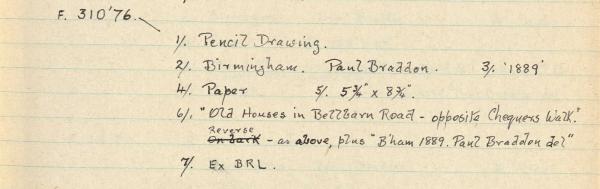 F. 310'76.
1/. Pencil Drawing.
2/. Birmingham. Paul Braddon. 3/. '1889'
4/. Paper 5/. 5¾" x 8¾".
6/. "Old Houses in Bellbarn Road - opposite Chequers Walk."
Reverse
On back - as above, plus "B'ham 1889. Paul Braddon del"
7/. Ex BRL.